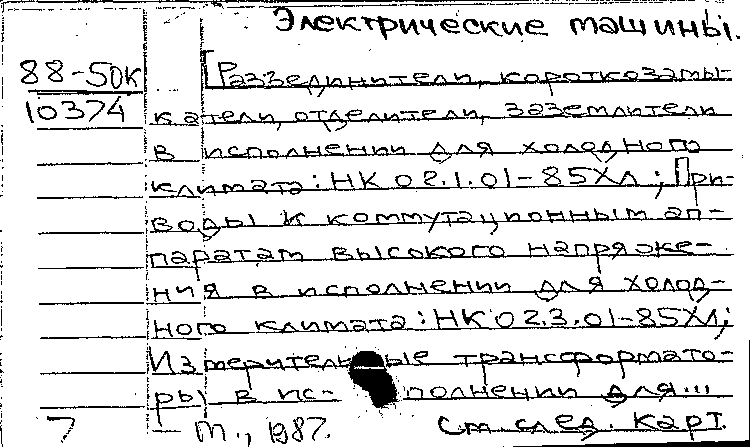 Электрические машины.
88-50К
10374
[Разъединители, короткозамы-
катели, отделители, заземлители
в исполнении для холодного
климата: НК 02.1.01-85ХЛ; При-
воды к коммутационным ап-
паратам высокого напряже-
ния в исполнении для холод-
ного климата: НК 02.3.01-85ХЛ;
Измерительные трансформато-
ры в ис- полнении для...
7 — М., 1987. См след. карт.